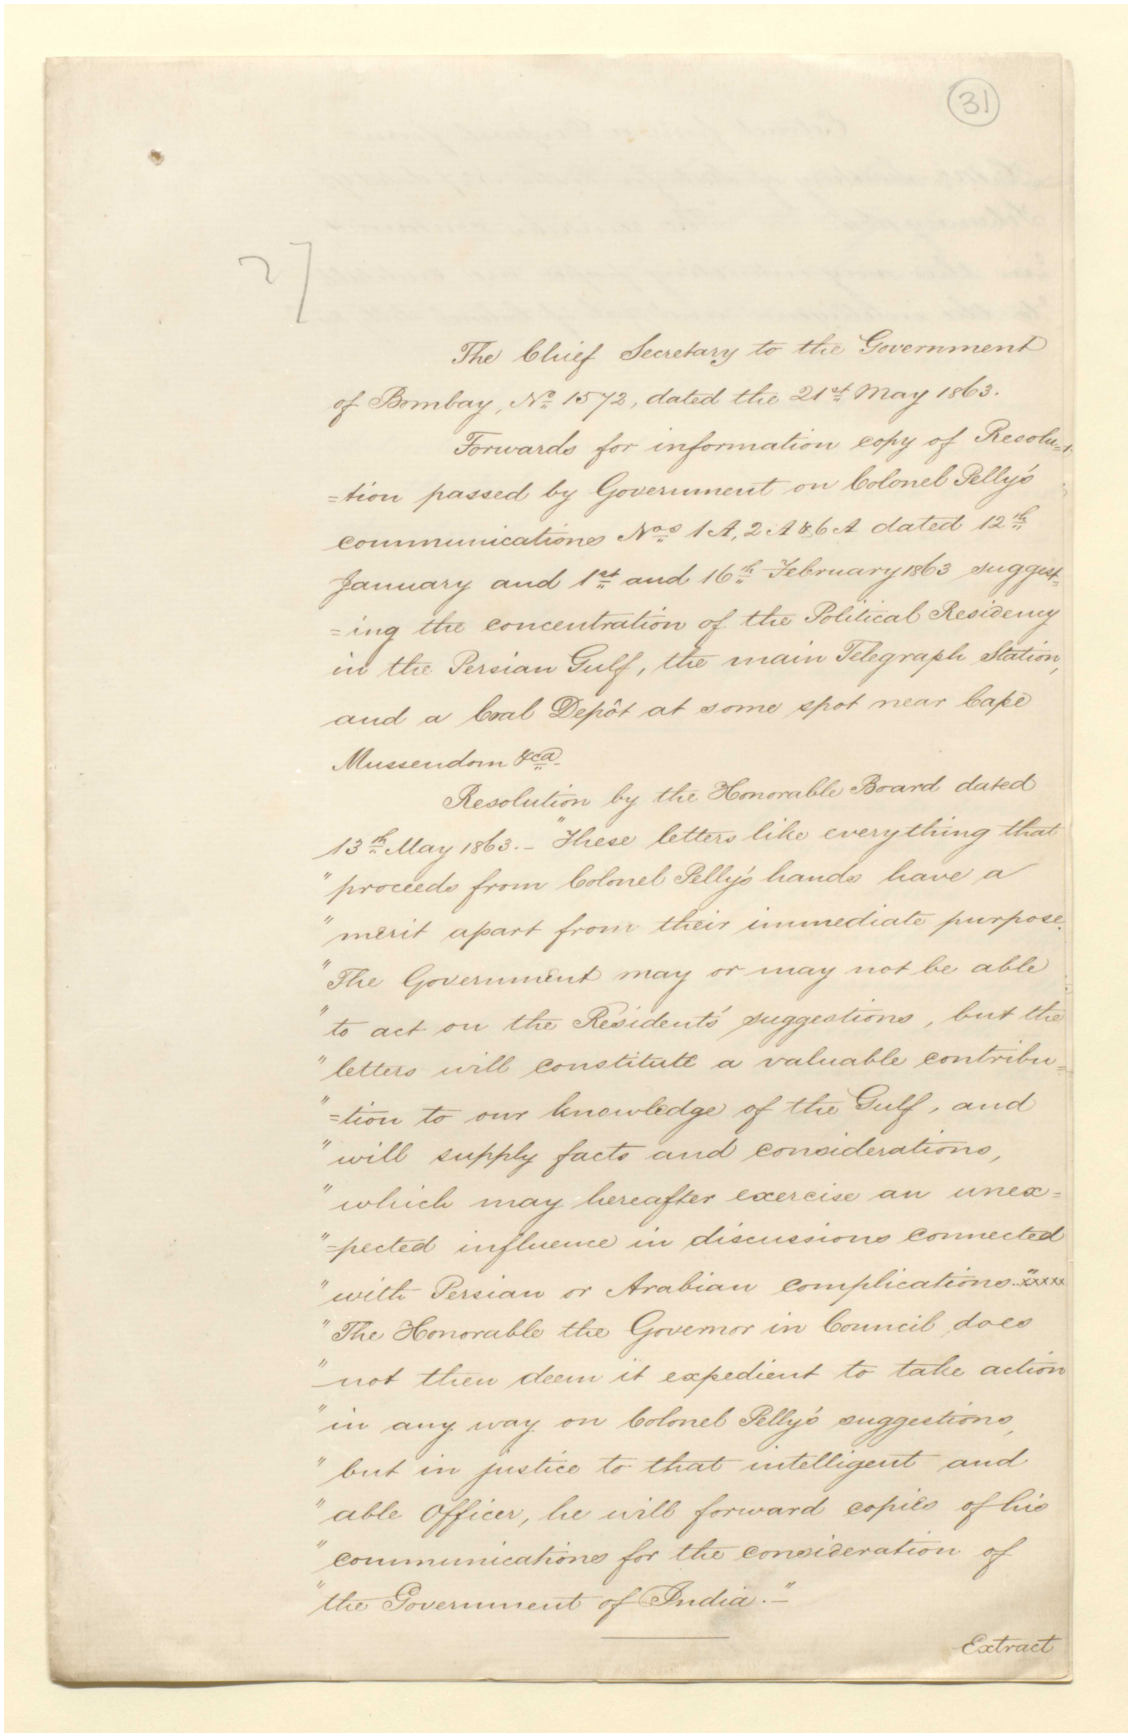 31
27
The Chief Secretary to the Government
of Bombay, No. 1572, dated the 21st May 1863.
Forwards for information copy of Resolu=
=tion passed by Government on Colonel Pelly's
communications Nos 1A, 2A & 6A dated 12th
January and 1st and 16th February 1863 suggest=
=ing the concentration of the Political Residency
in the Persian Gulf, the main Telegraph Station,
and a Coal Depôt at some spot near Cape
Mussendom &ca.
Resolution by the Honorable Board dated
13th May 1863. – "These letters like everything that
"proceeds from Colonel Pelly's hands have a
"merit apart from their immediate purpose.
"The Government may or may not be able
"to act on the Residents' suggestions, but the
"letters will constitute a valuable contribu=
"=tion to our knowledge of the Gulf, and
"will supply facts and considerations,
"which may hereafter exercise an unex=
"=pected influence in discussions connected
"with Persian or Arabian complications." xxxxx
"The Honorable the Governor in Council does
"not then deem it expedient to take action
"in any way on Colonel Pelly's suggestions,
"but in justice to that intelligent and
"able Officer, he will forward copies of his
"communications for the consideration of
"the Government of India." –
Extract